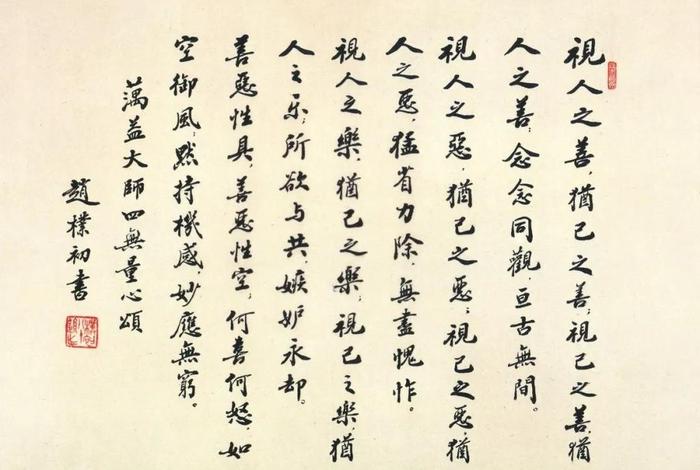 視人之善，猶己之善；視己之善，猶
人之善；念念同觀，亘古無間。
視人之惡，猶己之惡；視己之惡，猶
人之惡，猛省力除，無盡愧怍。
視人之樂，猶己之樂；視己之樂，猶
人之乐；所欲与共，嫉妒永却。
善惡性具，善惡性空，何喜何怒，如
空御風，默持機感，妙應無窮。
蕅益大師四無量心頌
趙樸初書